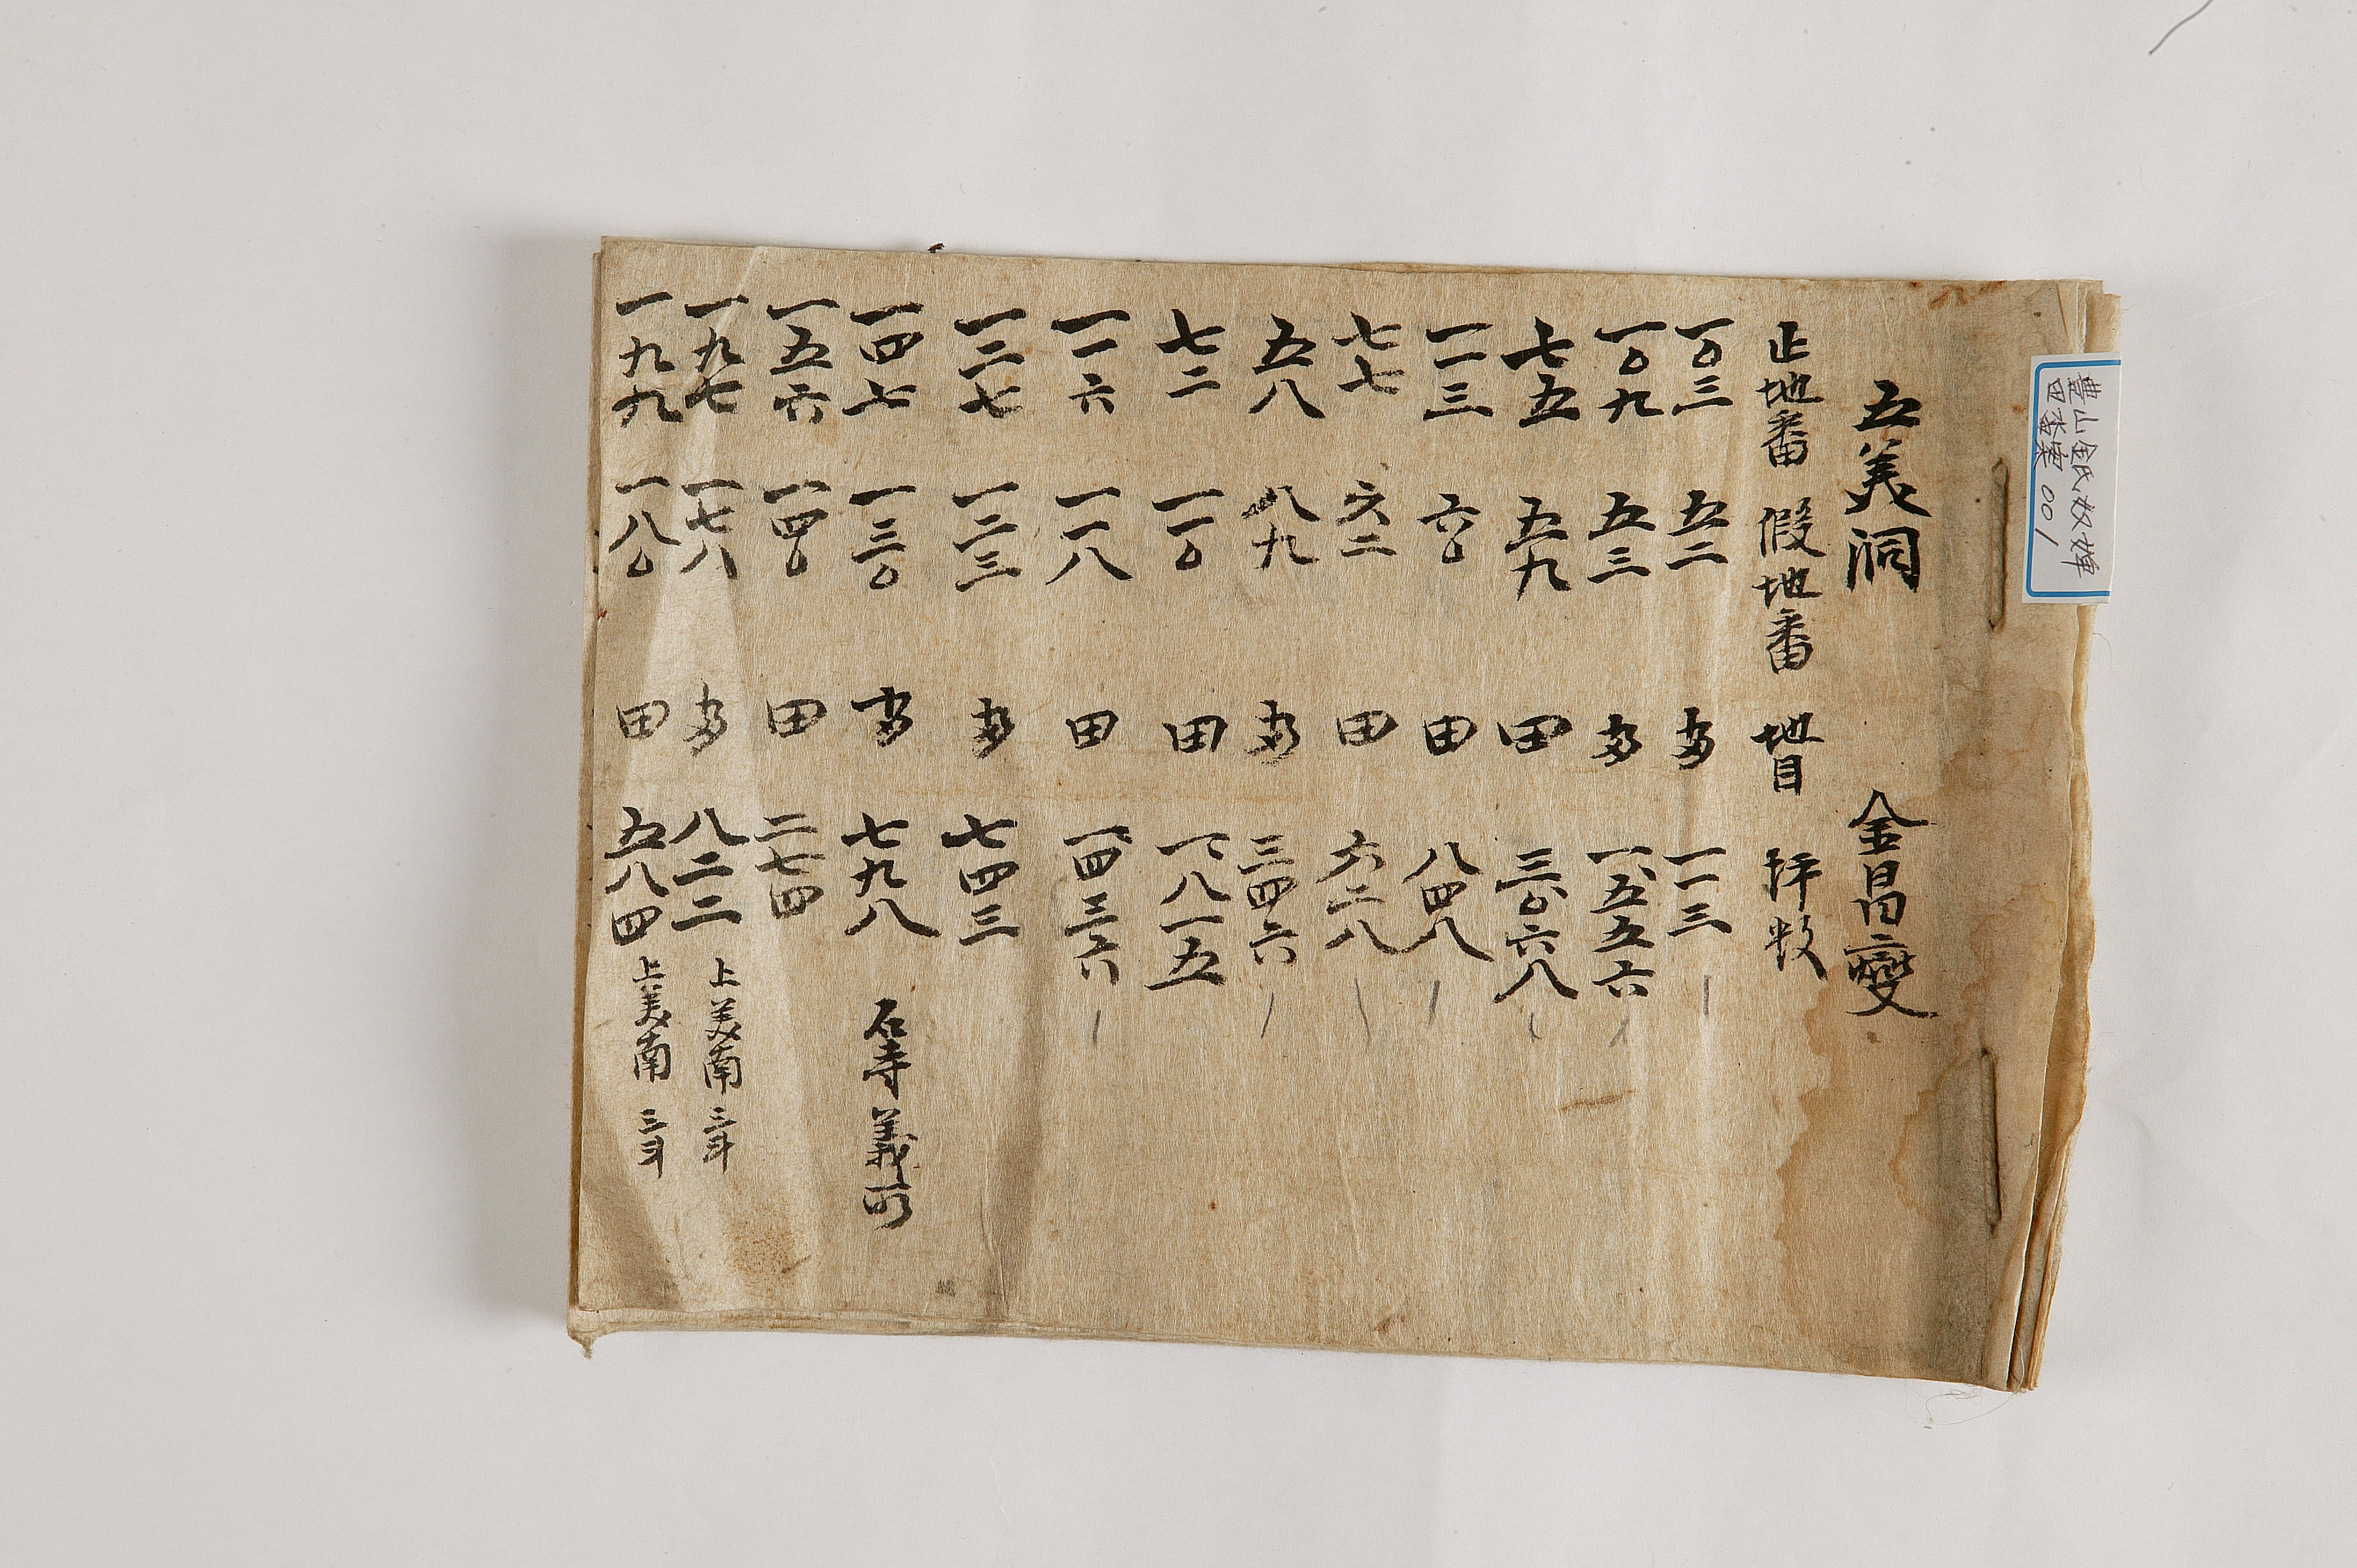 豊山金氏奴婢
田畓案 001
五美洞 金昌燮
止地番 假地番 地目 坪数
一〇三 五二 畓 一一三
一〇九 五三 畓 一、五五六
七五 五九 田 三、〇六八
一一三 六〇 田 八四八
七七 六二 田 六二八
五八 八九 畓 三四六
七二 一一〇 田 一、八一五
一一六 一一八 田 一、四三六
一二七 一二三 畓 七四三
一四七 一三〇 畓 七九八 石寺義可
一五六 一四〇 田 二七四
一九七 一七八 畓 八二二 上美南 三斗
一九九 一八〇 田 五八四 上美南 三斗